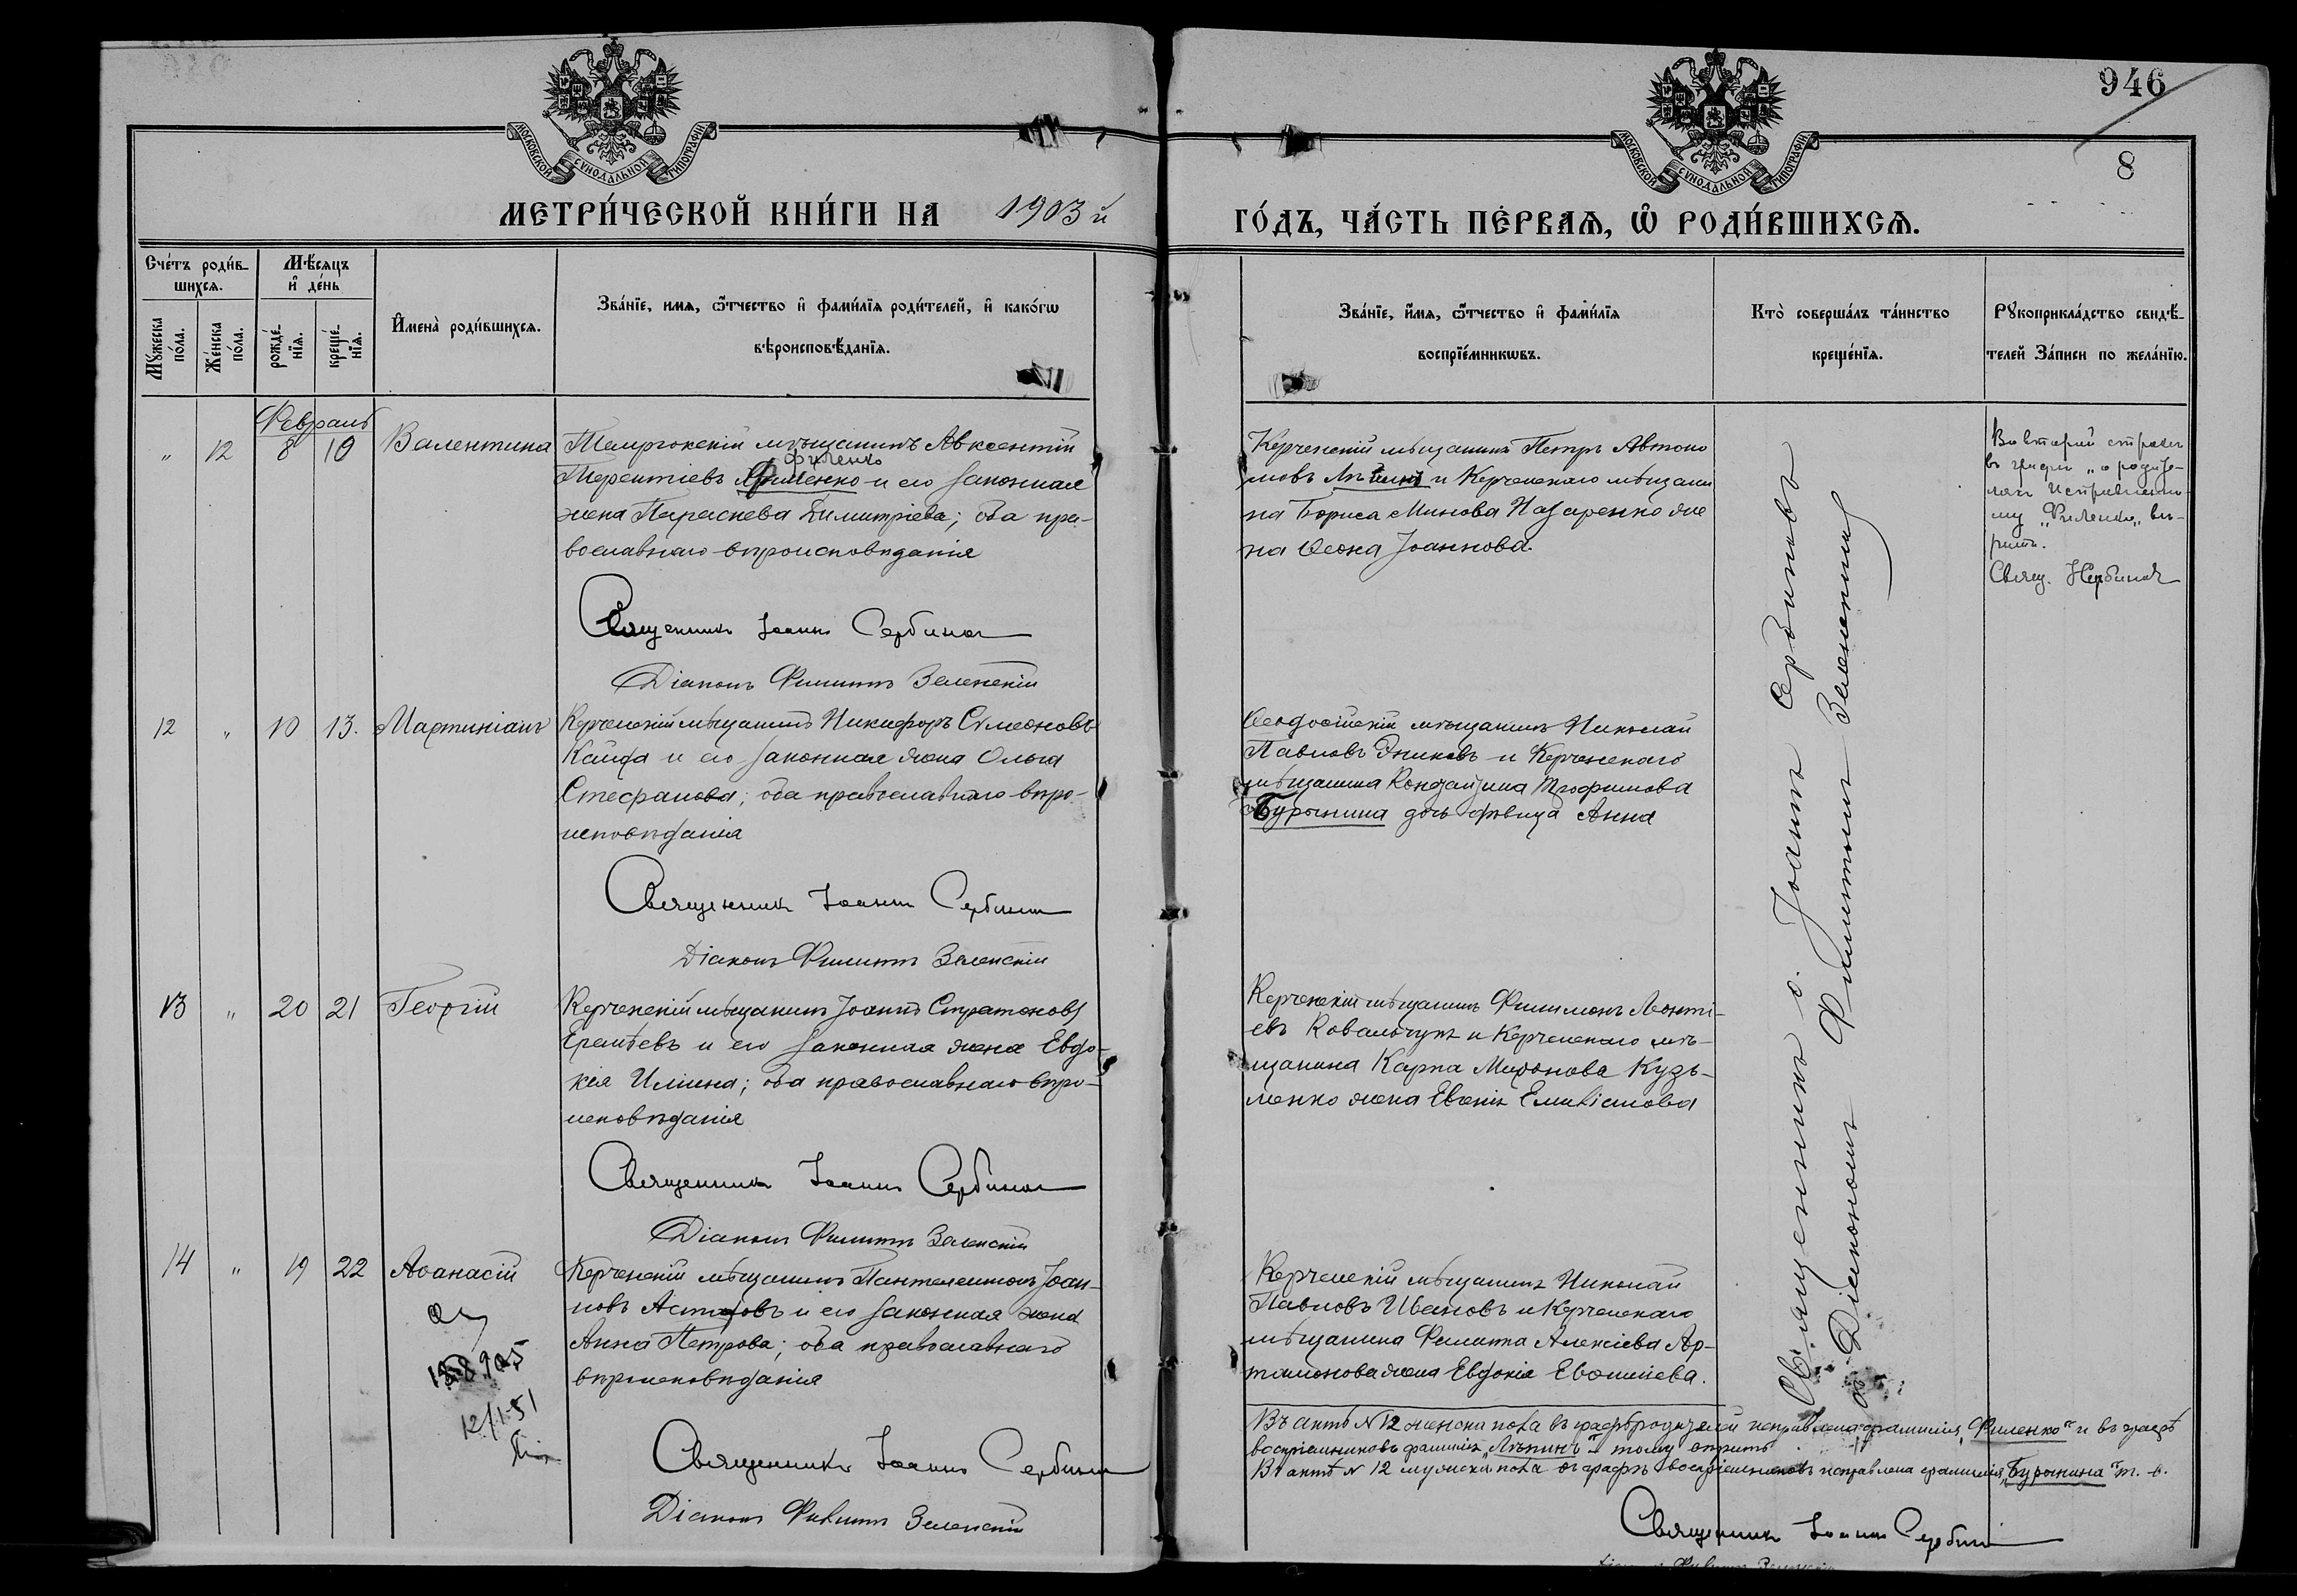 946
8
МОСКОВСКОЙ СУНОДАЛЬНОЙ ТИПОГРАФІИ
МОСКОВСКОЙ СУНОДАЛЬНОЙ ТИПОГРАФІИ
МЕТРИ́ЧЕСКОЙ КНИ́ГИ НА 1903 й
ГО́ДЪ, ЧА́СТЬ ПЕ́РВАЯ, Ѿ РОДИ́ВШИХСЯ.
Сче́тъ роди́в-
шихся.
Мѣ́сяцъ
и де́нь
Мꙋ́жеска по́ла.
Же́нска по́ла.
рожде́-
нїя.
креще́-
нїя.
Имена̀ роди́вшихся.
Зва́нїе, имя, ѻ҆́тчество и фами́лїя роди́телей, и како́гѡ
вѣроисповѣ́данїя.
Зва́нїе, и́мя, ѻ҆́тчество и фами́лїя
воспрїе́мникѡвъ.
Кто̀ соверша́лъ та́инство
креще́нїя.
Рꙋкоприкла́дство свидѣ́-
телей За́писи по жела́нїю.
Февраль
" 12 8 10 Валентина
Темрюкскій мѣщанинъ Авксентій
Филенко
Терентіевъ и его законная
жена Параскева Димитріева; оба пра-
вославнаго вѣроисповѣданія
Священникъ Іоаннъ Сербинов
Діаконъ Филиппъ Зеленскій
Керченскій мѣщанинъ Петръ Автоно
мовъ Лѣпинъ и Керченскаго мѣщани
на Бориса Минова Назаренко же
на Ѳеона Іоаннова.
Во второй строкѣ
въ графѣ „о родите-
ляхъ исправленно-
му „Филенко„ вѣ-
рить.
Свящ. Сербинов
12 " 10 13. Мартиніанъ
Керченскій мѣщанинъ Никифоръ Сѵмеоновъ
Кайда и его законная жена Ольга
Стефанова; оба православнаго вѣро-
исповѣданія
Священникъ Іоаннъ Сербинов
Діаконъ Филиппъ Зеленскій
Ѳеодосійскій мѣщанинъ Николай
Павловъ и Керченскаго
мѣщанина Трофимова
Бурыкина дочь дѣвица Анна
13 " 20 21 Георгій
Керченскій мѣщанинъ Іоаннъ Стратоновъ
Еремѣевъ и его законная жена Евдо-
кія Иліина; оба православнаго вѣро-
исповѣданія
Священникъ Іоаннъ Сербинов
Діаконъ Филиппъ Зеленскій
Керченскій мѣщанинъ Филимонъ Леонті-
евъ Ковальчукъ и Керченскаго мѣ-
щанина Карпа Миронова Кузь-
менко жена
14 " 19 22 Аѳанасій
12/I-51
Керченскій мѣщанинъ Пантелеимонъ Іоан-
новъ и его законная жена
Анна Петрова; оба православнаго
вѣроисповѣданія
Священникъ Іоаннъ Сербинов
Діаконъ Филиппъ Зеленскій
Керченскій мѣщанинъ Николай
Павловъ Ивановъ и Керченскаго
мѣщанина Филиппа Алексіева Ар-
тамонова жена Евдокія Евѳиміева.
Священникъ о. Іоаннъ Сербиновъ
съ Діакономъ Филиппомъ Зеленскимъ
Въ актѣ N 12 женска пола въ графѣ родителей исправлена фамилія „Филенко" и въ графѣ
воспріемниковъ фамилія „Лѣпинъ" – тому вѣрить.
Въ актѣ N 12 мужска пола въ графѣ воспріемниковъ исправлена фамилія „Бурыкина" т. в.
Священникъ Іоаннъ Сербинов
Діаконъ Филиппъ Зеленскій